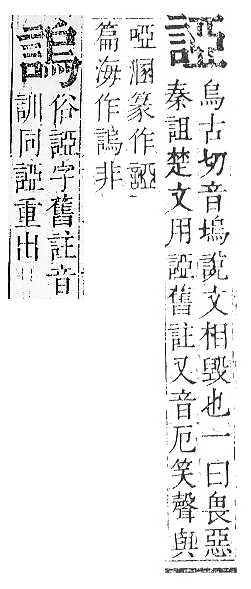 䛩
烏古切音塢說文相毀也一曰畏惡
秦詛楚文用䛩舊註又音厄笑聲與
啞溷篆作
篇海作非
俗䛩字舊註音
訓同䛩重出